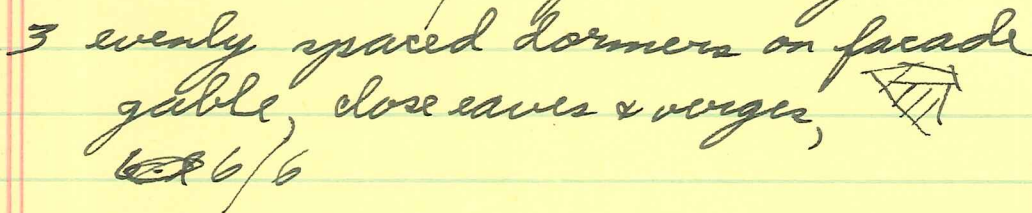 3 evenly spaced dormers on facade
gable, close eaves & verges,
6/6